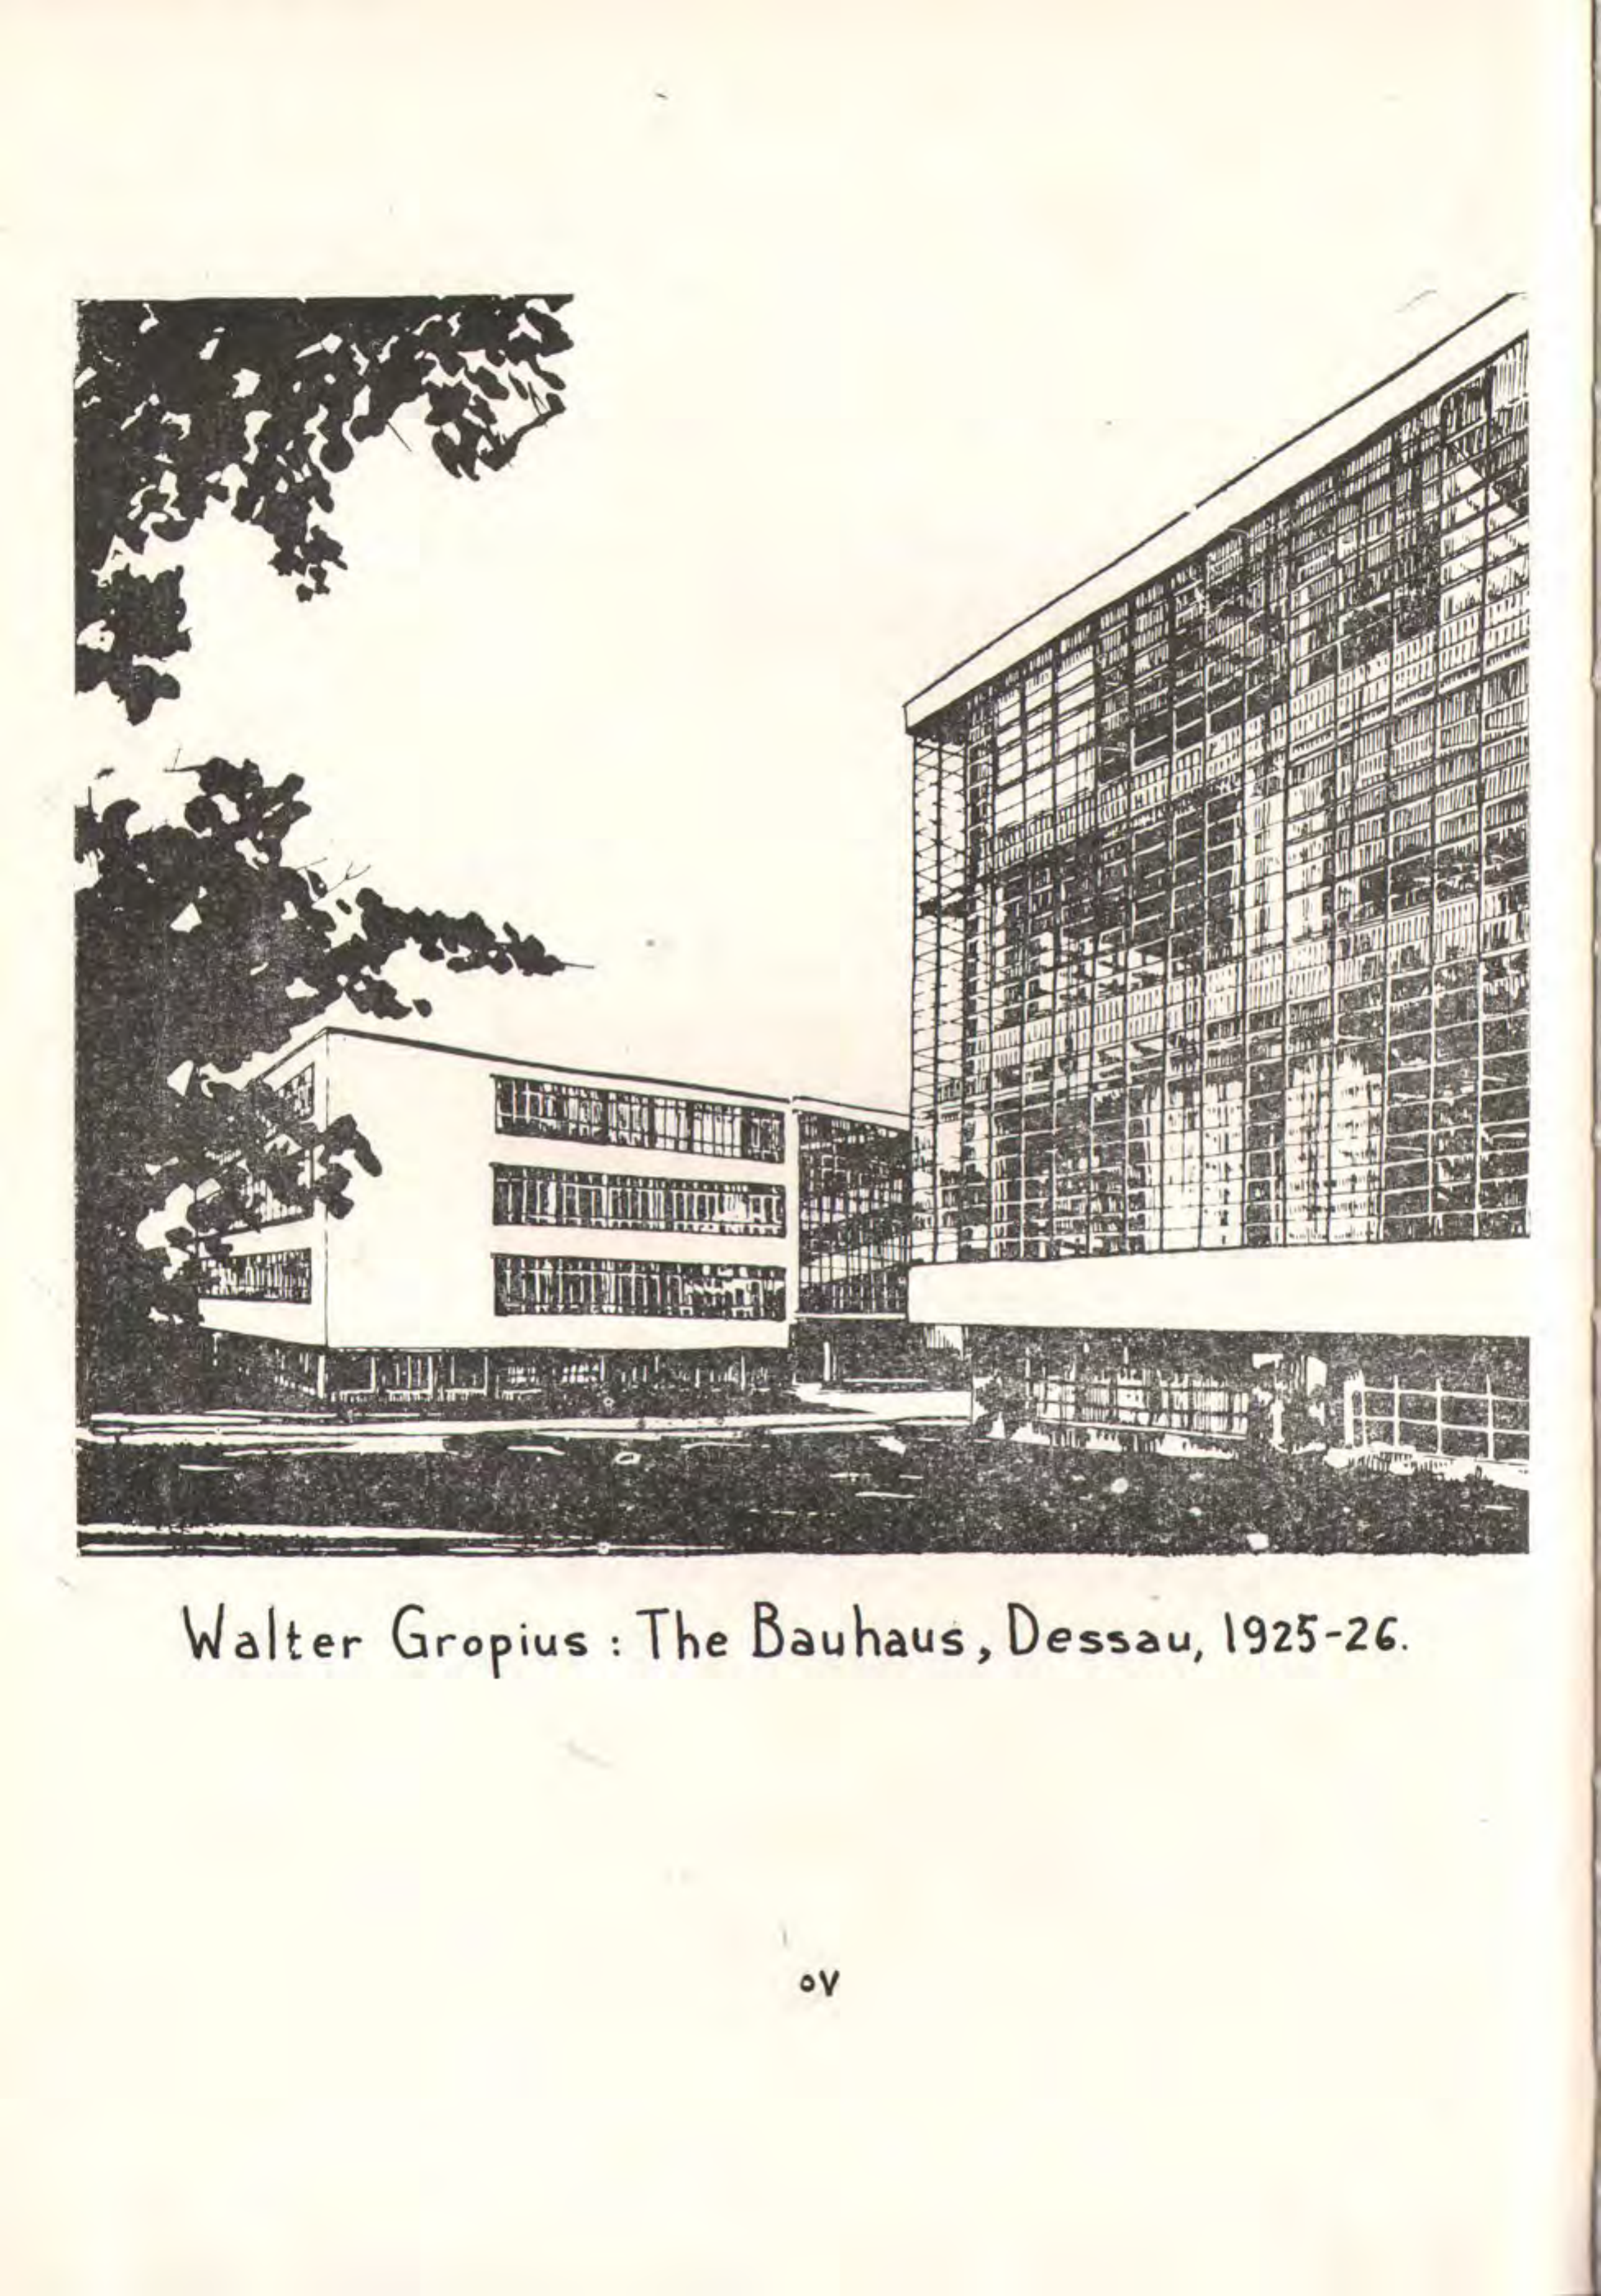 Walter Gropius : The Bauhaus, Dessau, 1925-26.
٥٧